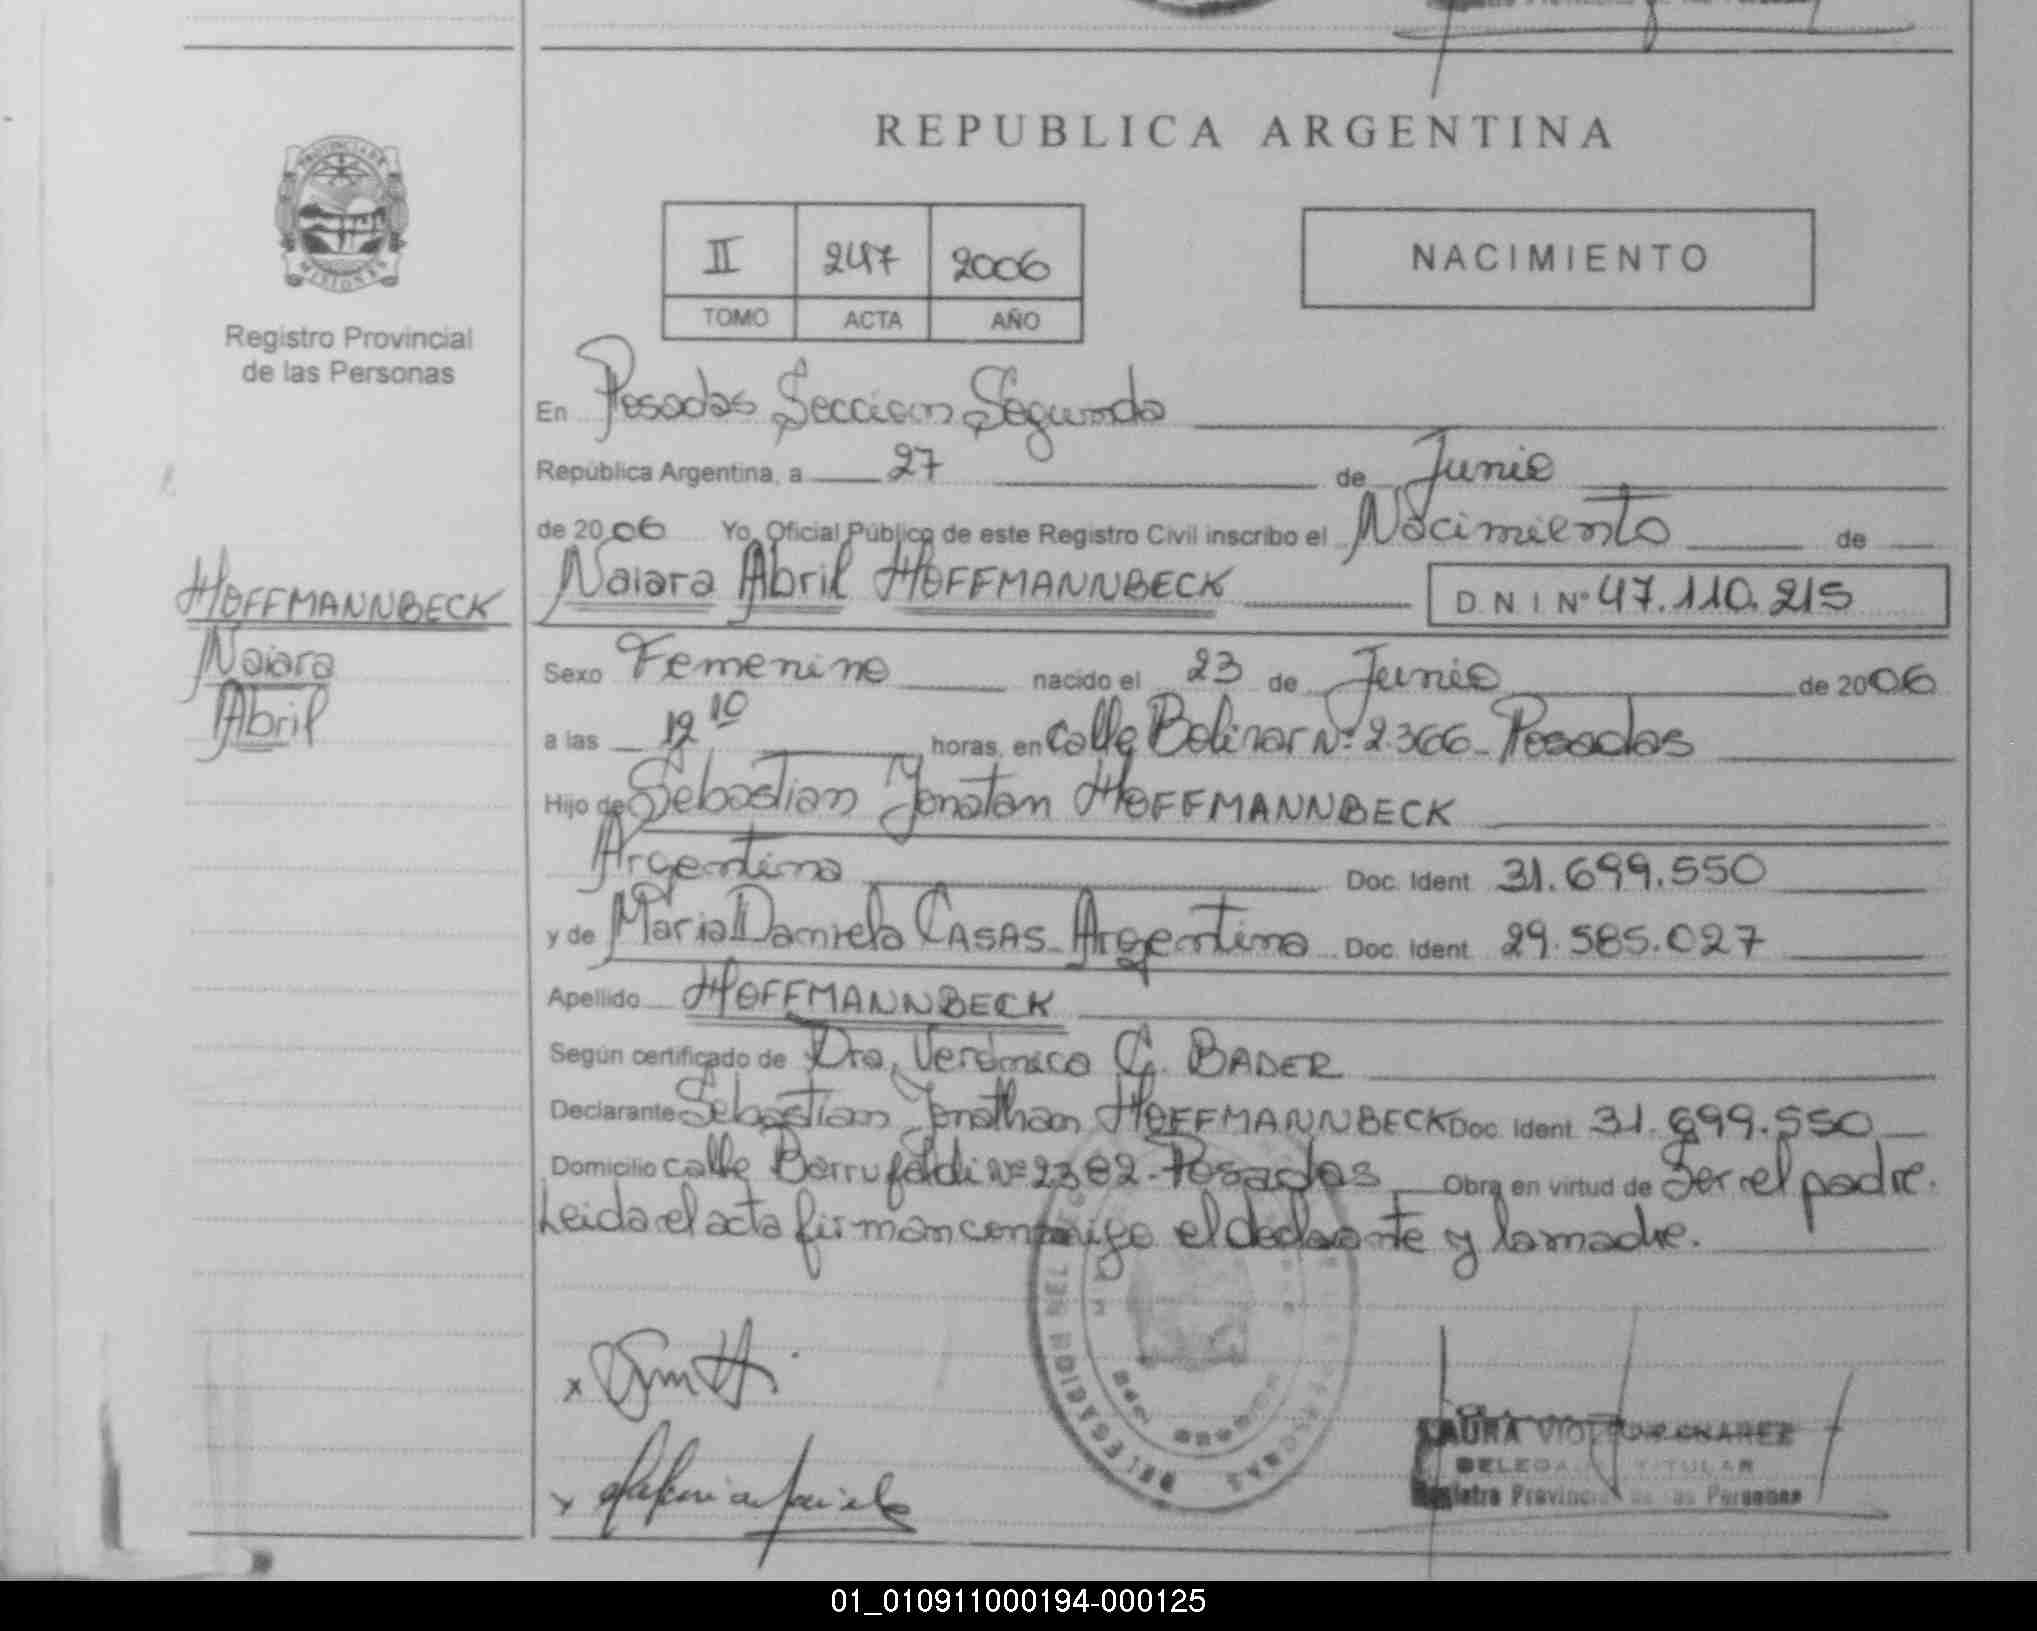 REPUBLICA ARGENTINA
PROVINCIA DE
MISIONES
Registro Provincial
de las Personas
II 247 2006
TOMO ACTA AÑO
NACIMIENTO
En Posadas Seccion Segunda
República Argentina, a 27 de Junio
de 2006 Yo, Oficial Público de este Registro Civil inscribo el Nacimiento de
HOFFMANNBECK
Naiara
Abril
Naiara Abril HOFFMANNBECK D.N.I. Nº 47.110.215
Sexo Femenino nacido el 23 de Junio de 2006
a las 12 10 horas, en calle Bolivar Nº 2.366 - Posadas
Hijo de Sebastian Jonatan HOFFMANNBECK
Argentina Doc. Ident. 31.699.550
y de Maria Daniela CASAS - Argentina Doc. Ident. 29.585.027
Apellido HOFFMANNBECK
Según certificado de Dra. Veronica C. BADER
Declarante Sebastian Jonathan HOFFMANNBECK Doc. Ident. 31.699.550
Domicilio calle Nº 2382 - Posadas Obra en virtud de Ser el padre.
Leida el acta firman conmigo el declarante y la madre.
LAURA
DELEGADA TITULAR
Registro Provincial de las Personas
01_010911000194-000125